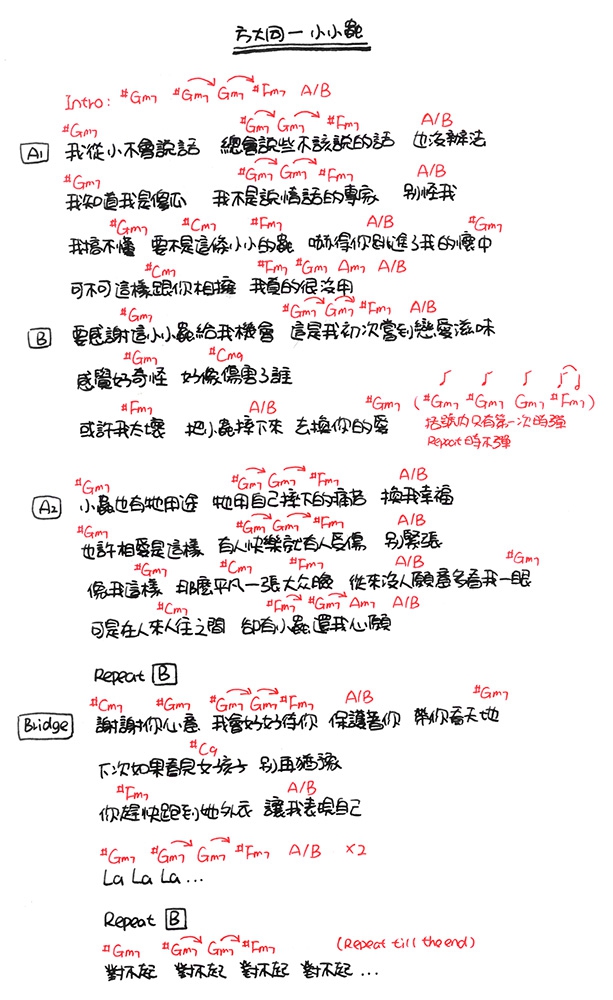 方大同 — 小小蟲
Intro: #Gm7 #Gm7 Gm7 #Fm7 A/B
#Gm7 #Gm7 Gm7 #Fm7 A/B
A1 我從小不會說話 總會說些不該說的話 也沒辦法
#Gm7 #Gm7 Gm7 #Fm7 A/B
我知道我是傻瓜 我不是說情話的專家 別怪我
#Gm7 #Cm7 #Fm7 A/B #Gm7
我搞不懂 要不是這條小小的蟲 嚇得你跳進了我的懷中
#Cm7 #Fm7 #Gm7 Am7 A/B
可不可這樣跟你相擁 我真的很沒用
#Gm7 #Gm7 Gm7 #Fm7 A/B
B 要感謝這小小蟲給我機會 這是我初次嘗到戀愛滋味
#Gm7 #Cm9
感覺好奇怪 好像傷害了誰
#Fm7 A/B #Gm7 (#Gm7 #Gm7 Gm7 #Fm7)
或許我太壞 把小蟲摔下來 去換你的愛
括號內只有第一次時彈
Repeat時不彈
#Gm7 #Gm7 Gm7 #Fm7 A/B
A2 小蟲也有牠用途 牠用自己摔下的痛苦 換我幸福
#Gm7 #Gm7 Gm7 #Fm7 A/B
也許相愛是這樣 有人快樂就有人受傷 別緊張
#Gm7 #Cm7 #Fm7 A/B #Gm7
像我這樣 那麼平凡一張大众臉 從來沒人願意多看我一眼
#Cm7 #Fm7 #Gm7 Am7 A/B
可是在人來人往之間 卻有小蟲還我心願
Repeat B
#Cm7 #Gm7 #Gm7 Gm7 #Fm7 A/B #Gm7
Bridge 謝謝你心意 我會好好待你 保護著你 帶你看天地
#C9
下次如果看見女孩子 別再猶豫
#Fm7 A/B
你趕快跑到她外衣 讓我表現自己
#Gm7 #Gm7 Gm7 #Fm7 A/B ×2
La La La ...
Repeat B
#Gm7 #Gm7 Gm7 #Fm7 (Repeat till the end)
對不起 對不起 對不起 對不起 ...